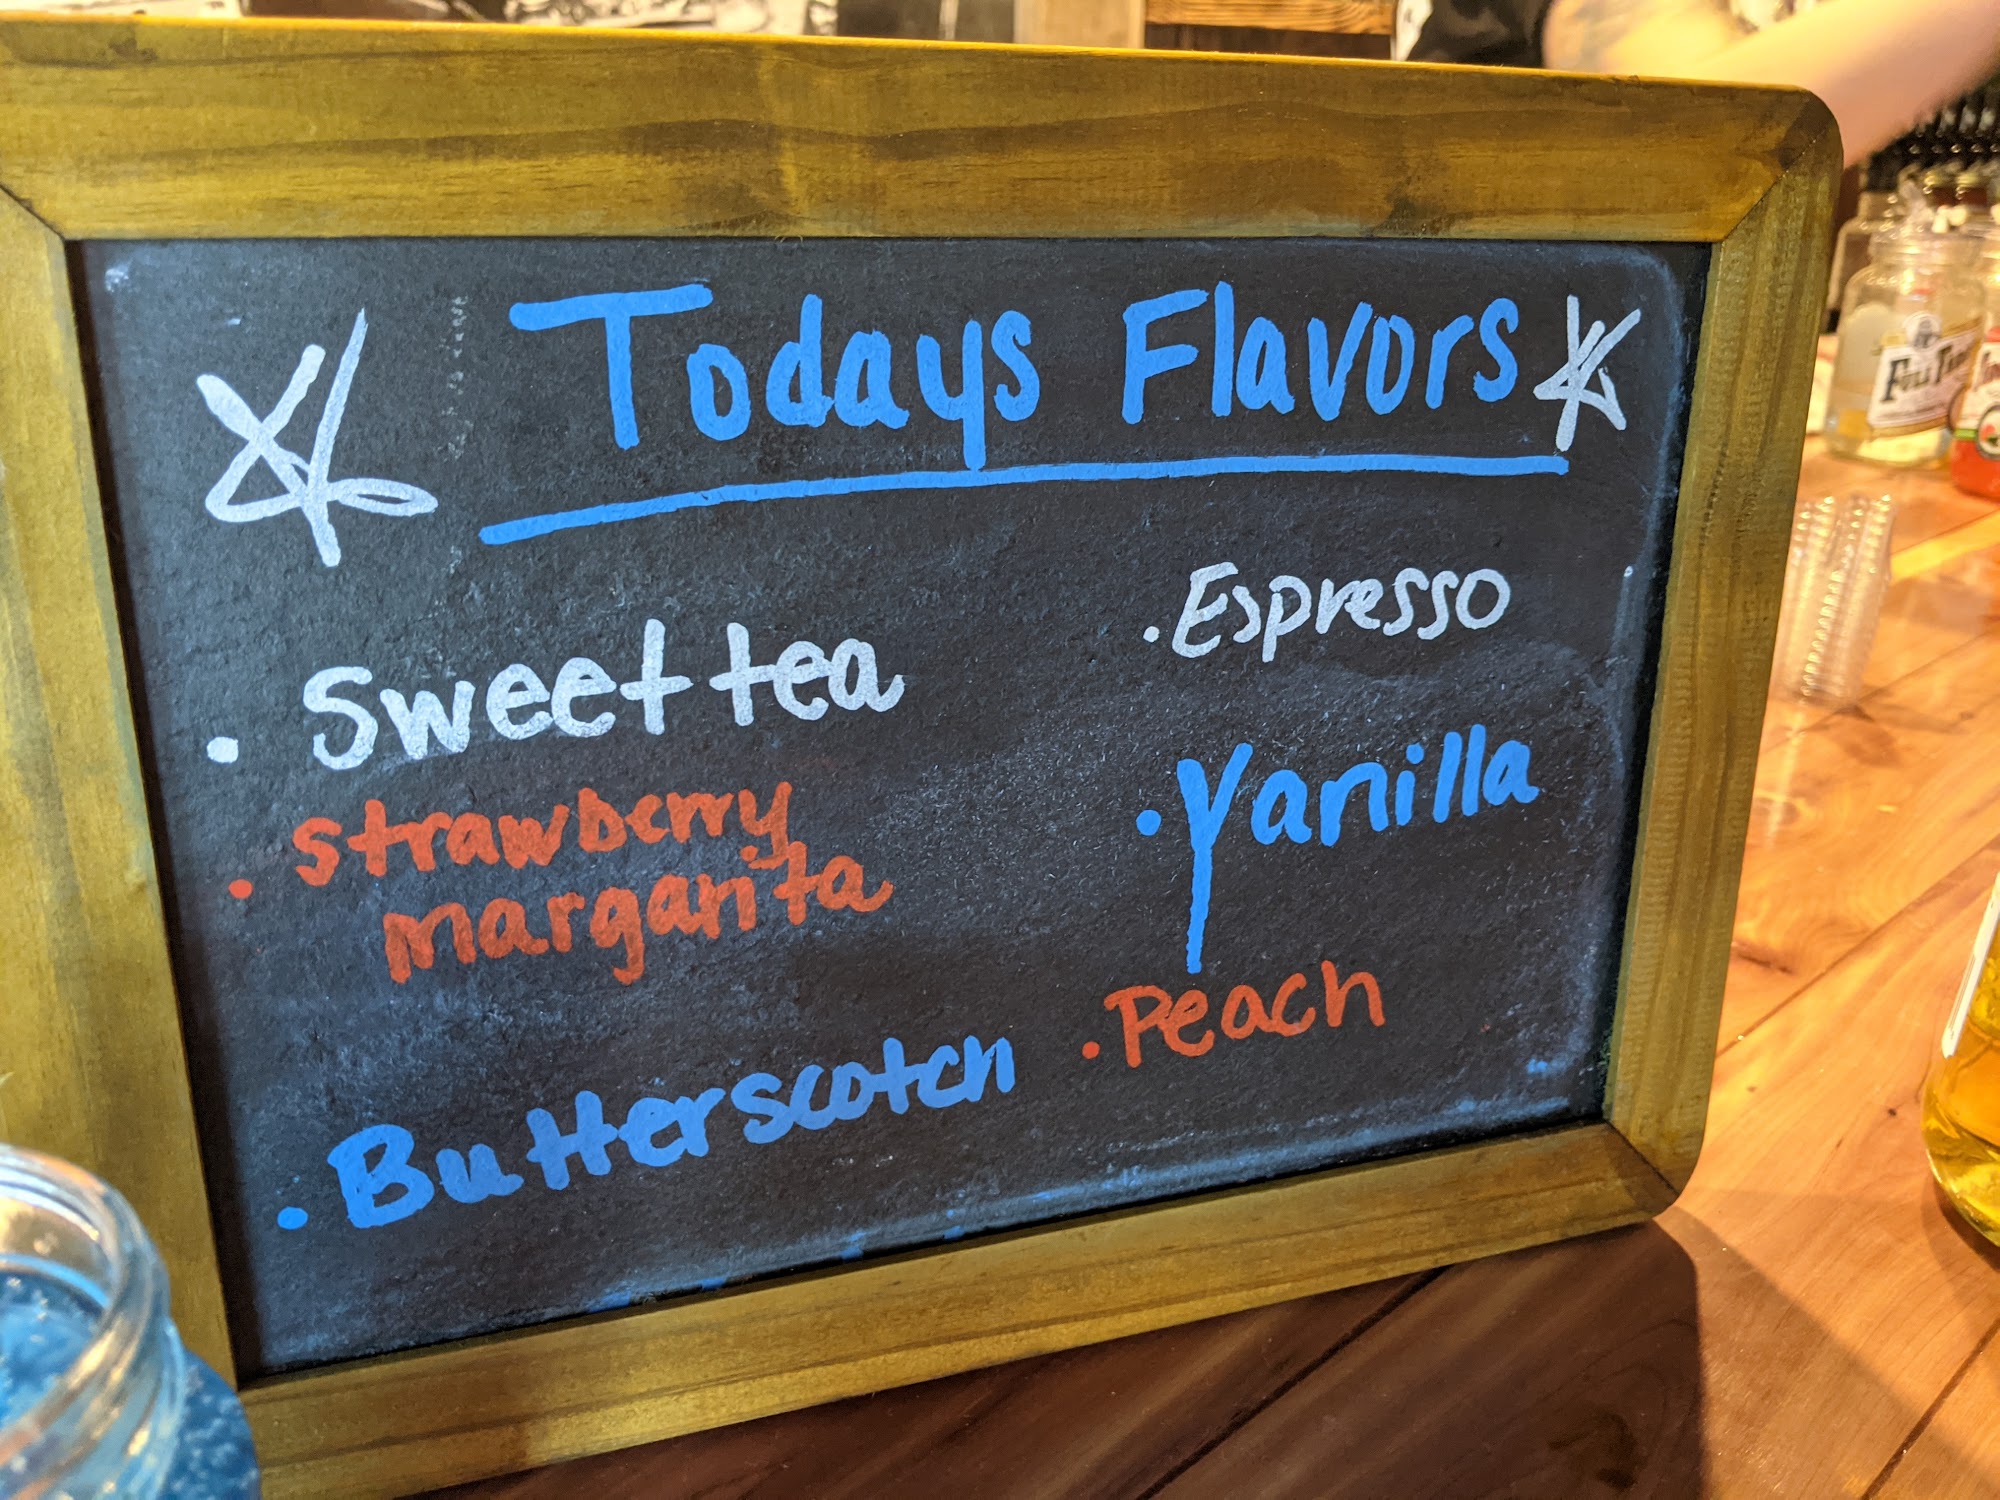 Todays Flavors
• Sweet tea
• strawberry
margarita
• Butterscotch
• Espresso
• Vanilla
• Peach